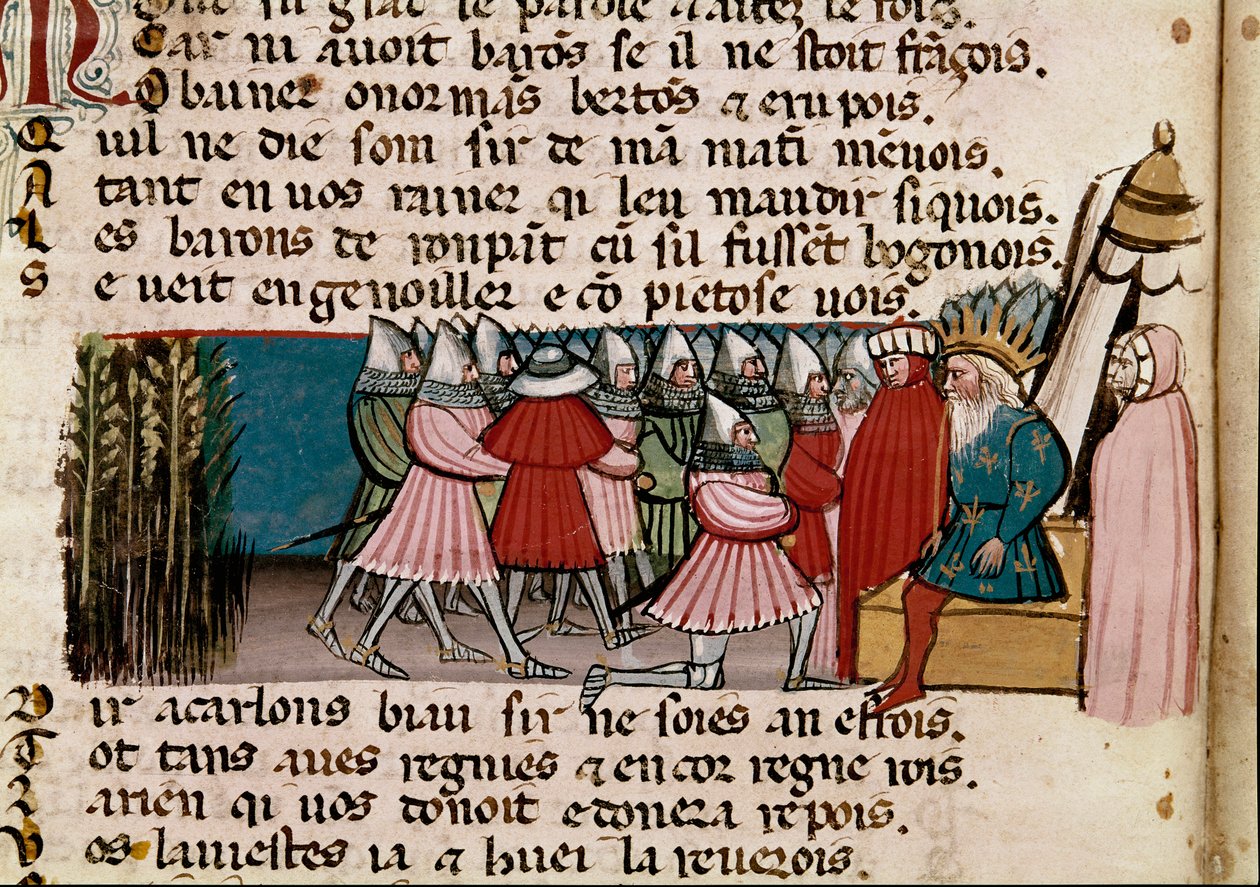 Car ni auoit barōs se il ne stoit frāçois.
O bainer onormās bertōs ⁊ erupois.
Q uil ne die som sir de mā matī mēuois.
A tant en uos rainer qi leu maudir siquois.
L es barons de ronpāt cū sil fussēt borgonois.
S e ueit engenoiller e cō pietose uois.
D ir acarlons biau sir ne soies an effrois.
T ot tans aues regnies ⁊ encor regne rois.
Z arien qi uos donoit e donera repois.
V os lauiestes ia ⁊ huei la reuerois.